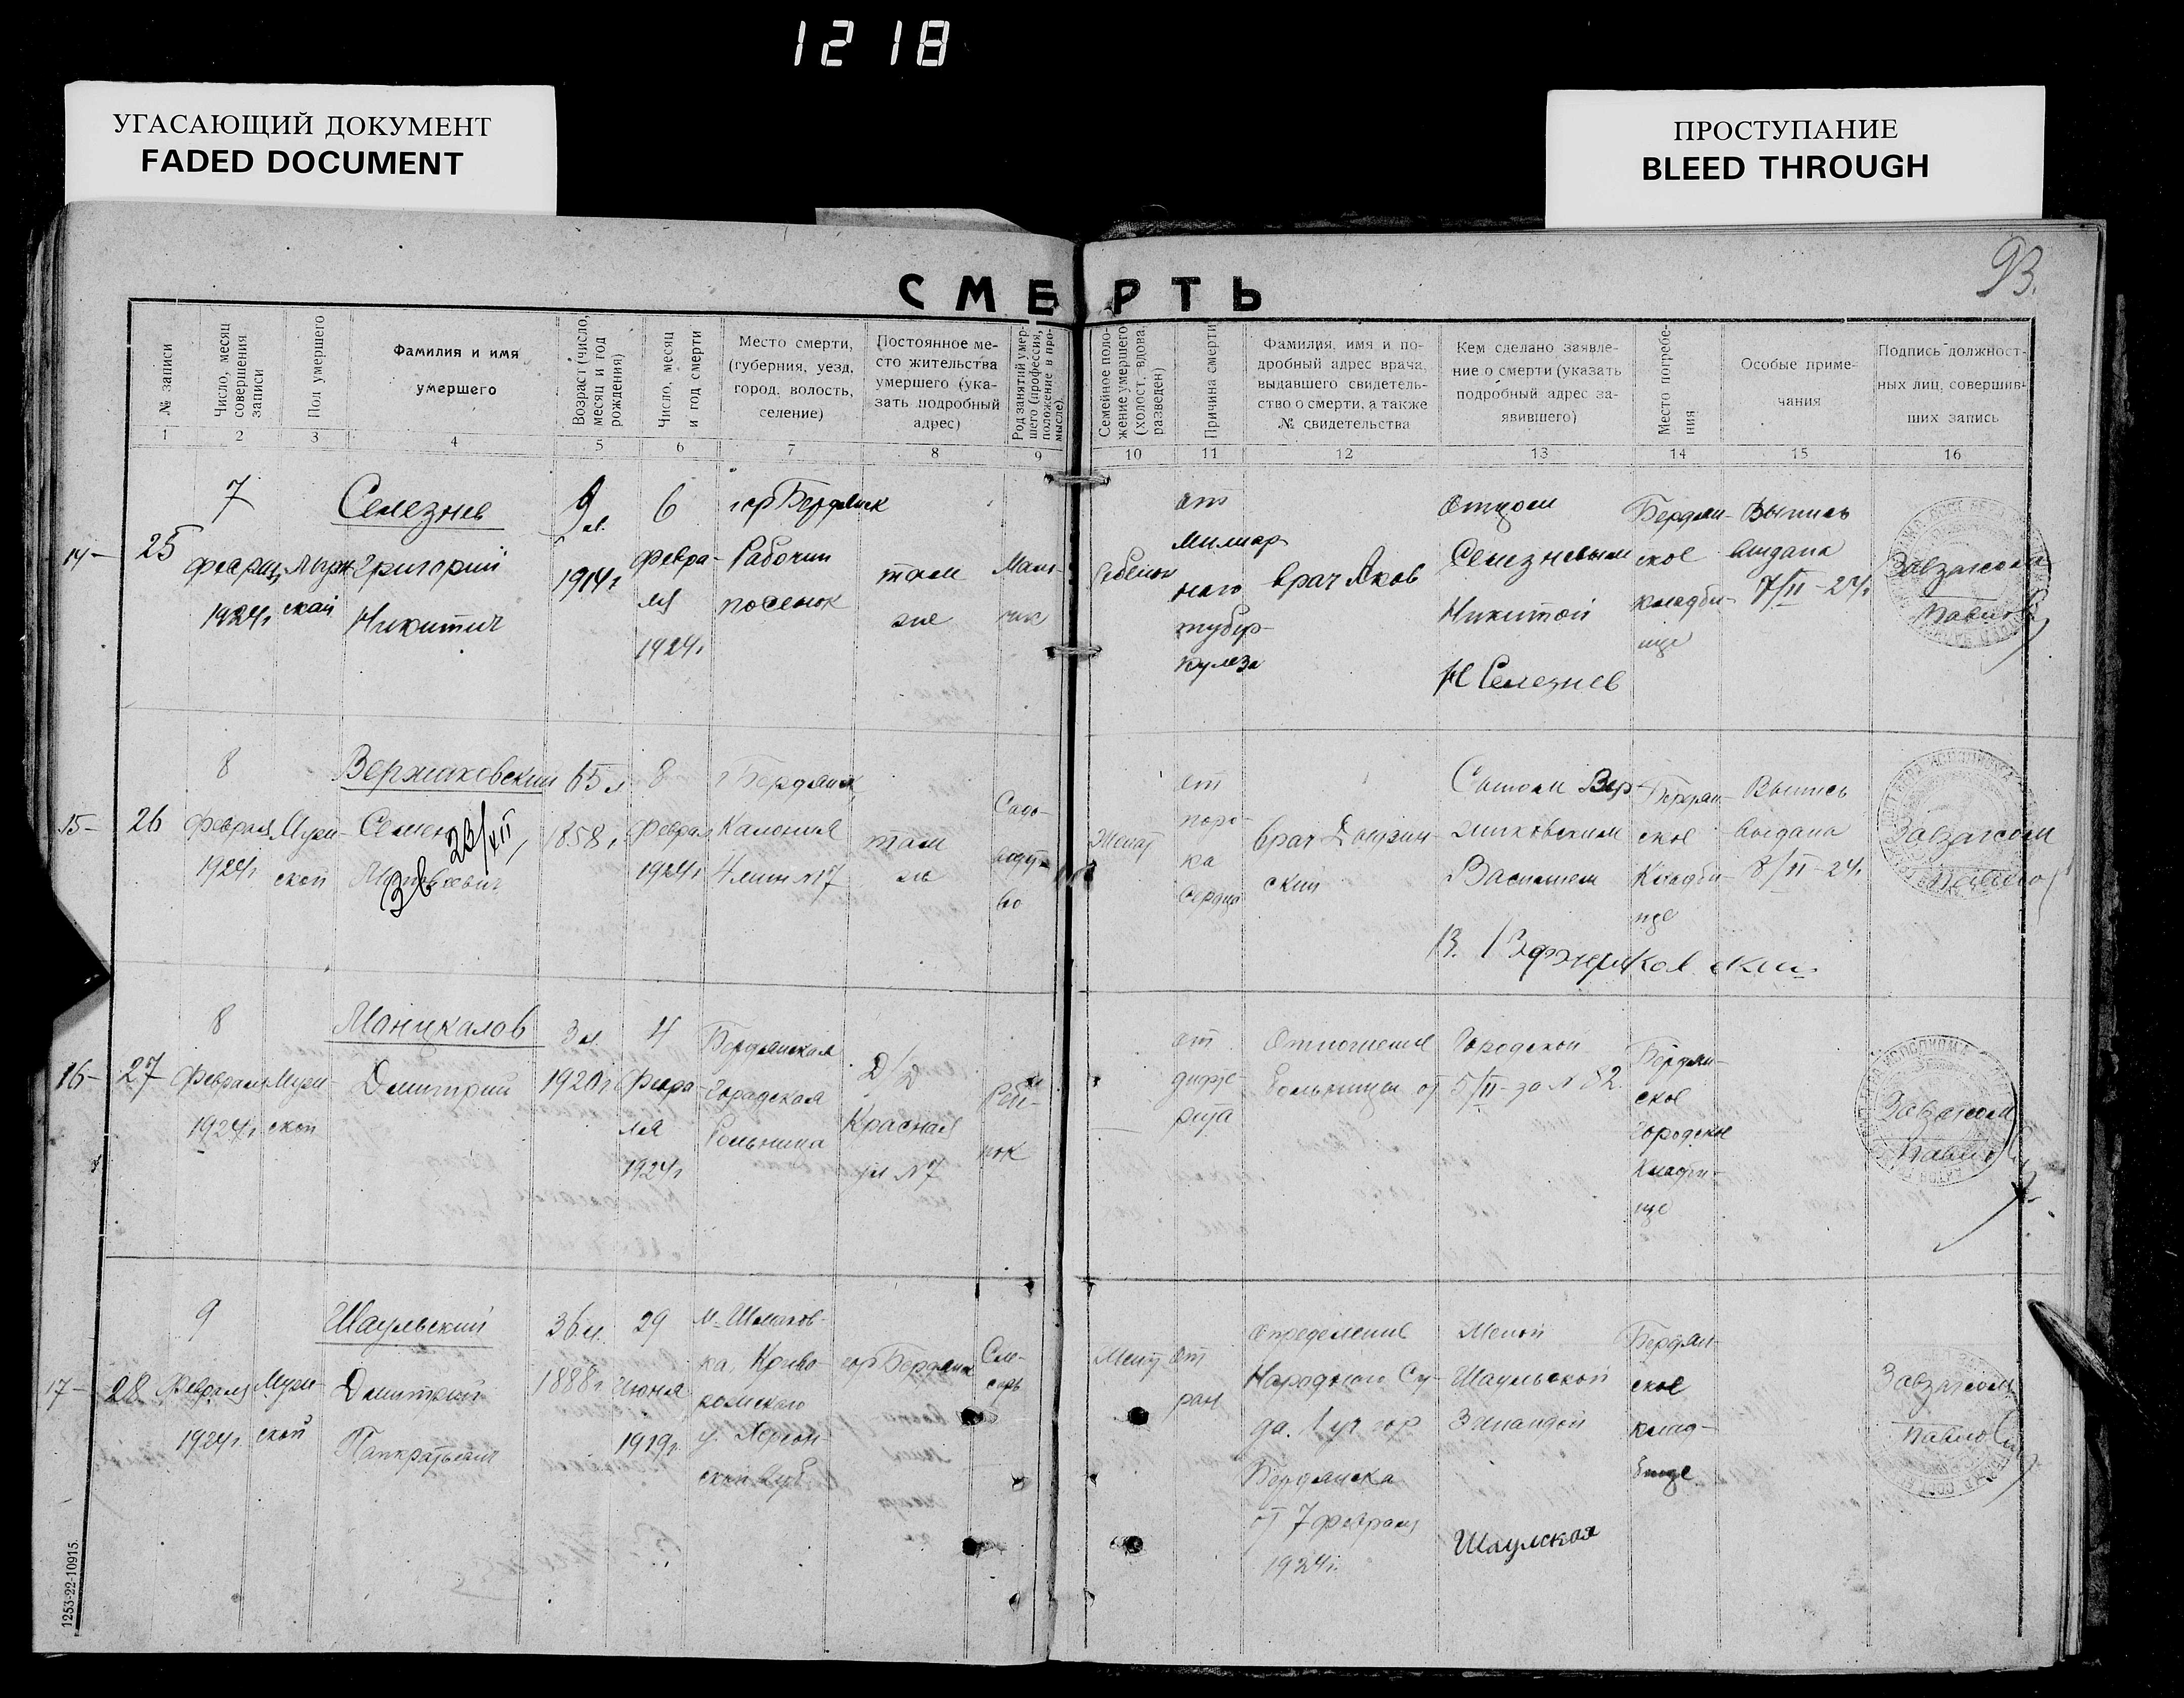 1218
УГАСАЮЩИЙ ДОКУМЕНТ
FADED DOCUMENT
ПРОСТУПАНИЕ
BLEED THROUGH
93.
СМЕРТЬ
№ записи
Число, месяц совершения записи
Пол умершего
Фамилия и имя
умершего
Возраст (число, месяц и год рождения)
Число, месяц и год смерти
Место смерти,
(губерния, уезд,
город, волость,
селение)
Постоянное ме-
сто жительства
умершего (ука-
зать подробный
адрес)
Род занятий умер-
шего (профессия,
положение в про-
мысле).
Семейное поло-
жение умершего
(холост., вдова,
разведен)
Причина смерти
Фамилия, имя и по-
дробный адрес врача,
выдавшего свидетель-
ство о смерти, а также
№ свидетельства
Кем сделано заявле-
ние о смерти (указать
подробный адрес за-
явившего)
Место погребе-
ния
Особые приме-
чания
Подпись должност-
ных лиц, совершив-
ших запись
1 2 3 4 5 6 7 8 9 10 11 12 13 14 15 16
14-
25
7
февраля
1924г.
Муж-
ской
Селезнев
Григорий
Никитич
9 л.
1914г
6
Февра-
ля
1924г
гор Бердянск
Рабочий
поселок
там
же
Маль-
чик
Ребенок
от
милиар-
ного
тубер-
кулеза
врач Яков
Отцом
Селезневым
Никитой
Н Селезнев
Бердян-
ское
кладби-
ще
Выпись
выдана
7/II-24г.
Завзагсом
Павлов
15-
26
8
февраля
1924г
Мужс-
ской
Вержиковский
Семен
23/XII
65 л
1858г.
8
Феврал
1924г
г Бердянск
Калония
4 лин №17
там
же
Садо-
водст-
во
Женат
от
поро-
ка
сердца
врач
ский
Сыном Вер-
жиковским
Василием
Бердян-
ское
Кладби-
ще
Выпись
выдана
8/II-24г.
Завзагсом
16-
27
8
Февраля
1924г
Мужс-
ской
Манцкалов
Дмитрий
3 л.
1920г.
4
Февра-
ля
1924г
Бердянская
Городская
больница
Д/Д
Красная
ул №7
Ребе-
нок
от
дифте-
рита
Отношение Городской
больницы от 5/II-за №82.
Бердян-
ское
городское
Кладби-
ще
Завзагсом
Павлов
17-
28
9
Февраля
1924г.
Мужс-
ской
Шаульский
Дмитрий
Панкратьевич
36 л.
1888г.
29
июня
1919г.
м. Шмаков-
ка, Криво-
рожского
у. Херсон-
ской Губ.
гор Бердянск
Сле-
сарь
Женат
от
ран
Определение
Народного Су-
да. 1 уч гор
Бердянска
от 7 февраля
1924г.
Женой
Шаульской
Зинаидой
Шаулская
Бердян-
ское
клад-
бище.
Завзагсом
Павлов
1253-22-10915.